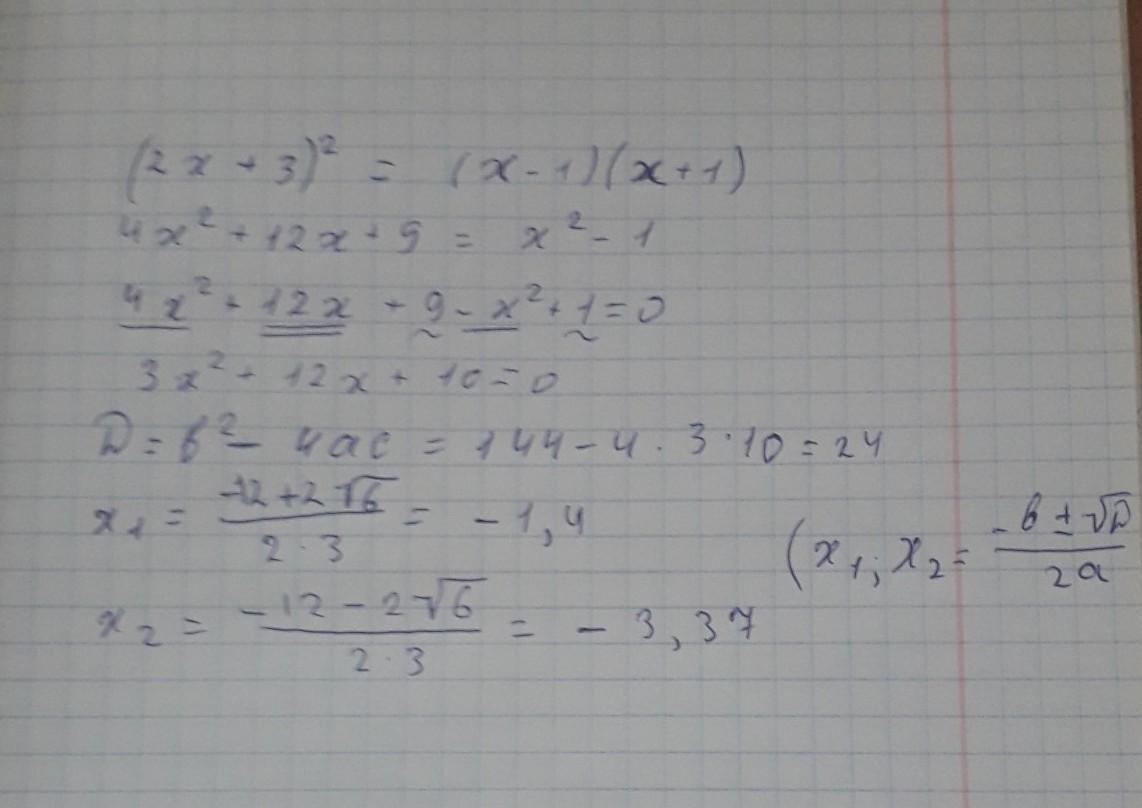 (2x + 3)² = (x - 1)(x + 1)
4x² + 12x + 9 = x² - 1
4x² + 12x + 9 - x² + 1 = 0
3x² + 12x + 10 = 0
D = b² - 4ac = 144 - 4 · 3 · 10 = 24
x₁ = (-12 + 2√6)/(2 · 3) = - 1,4
(x₁; x₂ = (-b ± √D)/(2a)
x₂ = (-12 - 2√6)/(2 · 3) = - 3,37